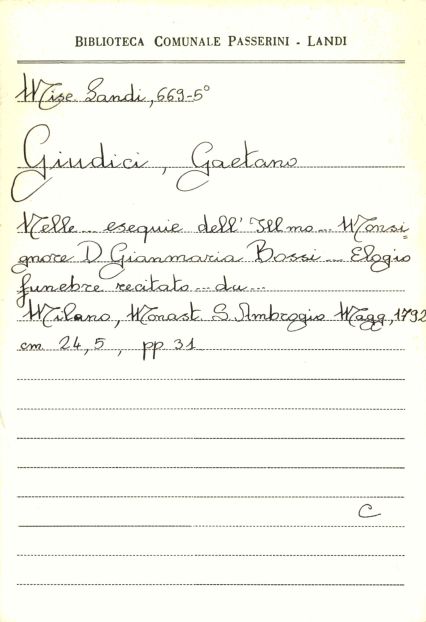 BIBLIOTECA COMUNALE PASSERINI - LANDI
Misc. Landi, 669-5°
Giudici, Gaetano
Nelle... esequie dell' Illmo... Monsi=
gnore D. Gianmaria Bossi... Elogio
funebre recitato... da...
Milano, Monast. S. Ambrogio Magg., 1792
cm. 24,5, pp. 31
C